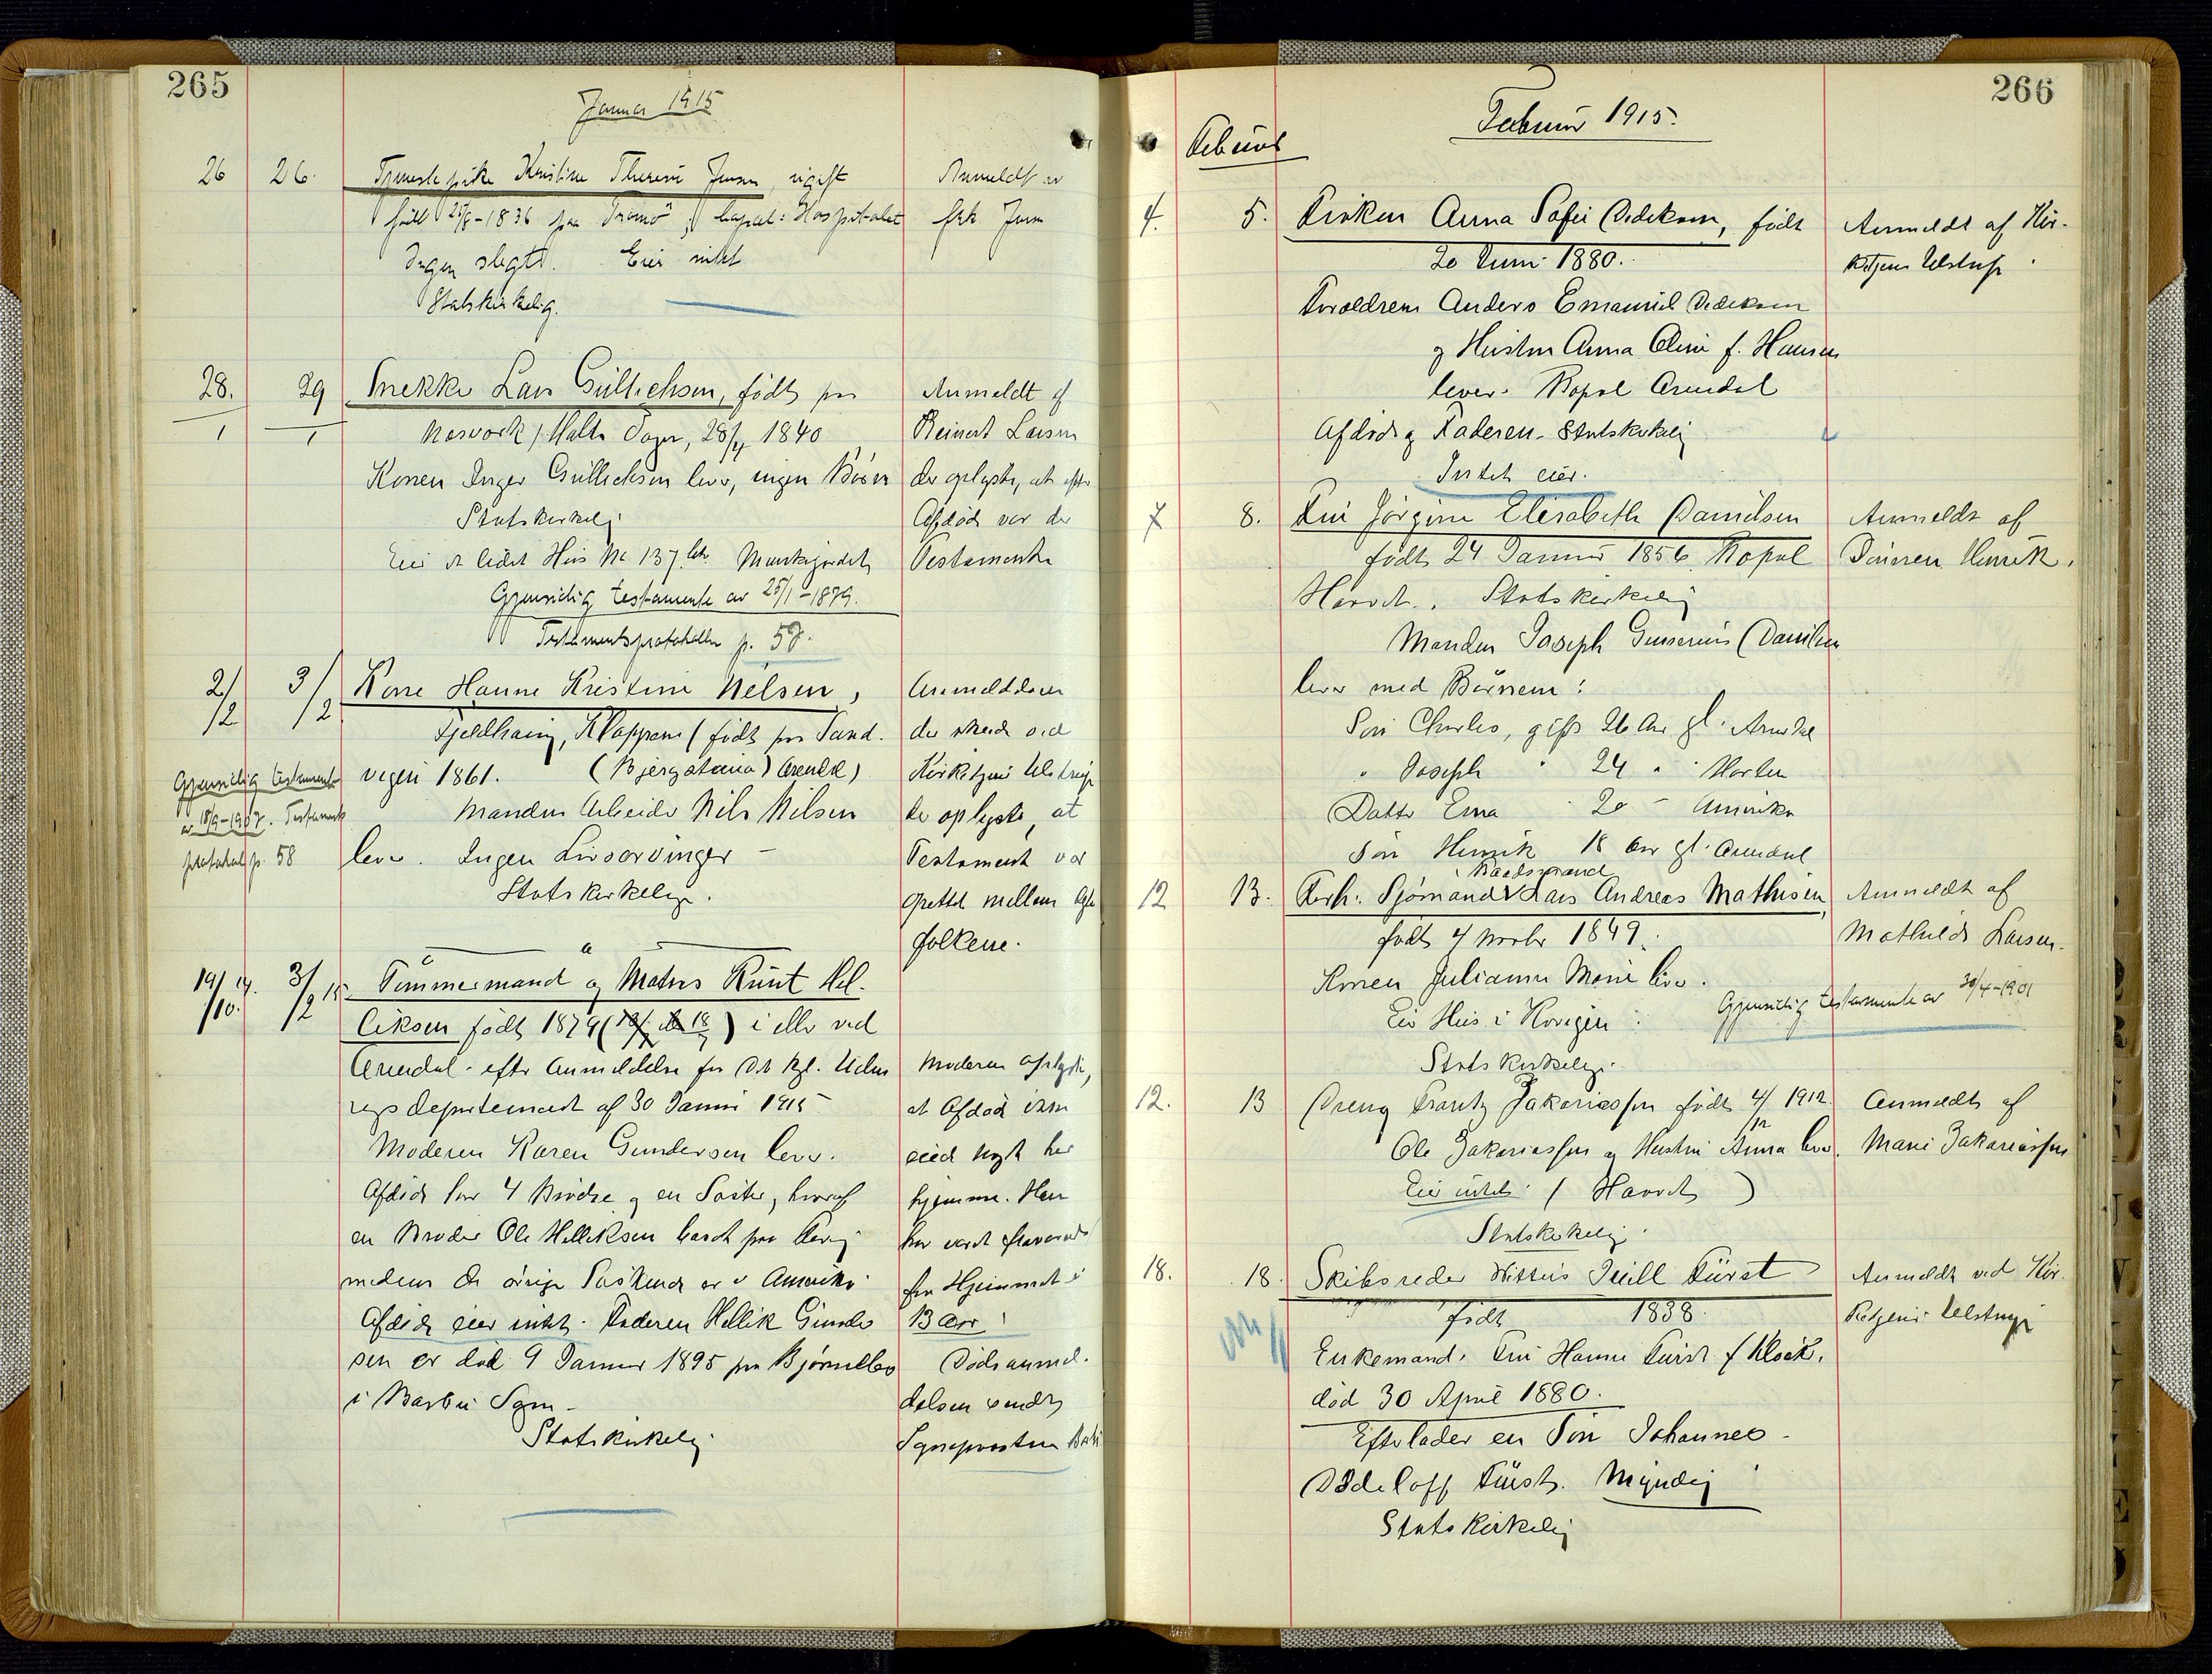 265
Januar 1915
26 26. Tjenestepike Kristine Therese Jensen, ugift
født 25/8-1836 paa Tromö; bopæl: Hospitalet
Ingen slegt. Eier intet
Statskirkelig.
Anmeldt av
frk Jensen
28. 29 Snekker Lars Gullichsen, født paa
1 1
28/4 1840
Konen Inger Gullichsen lever, ingen Börn
Statskirkelig
Eier et lidet Hus No 137
Gjensidig testamente av 25/1-1899.
Testamentsprotokollen p. 57.
Anmeldt af
Reinert Larsen
der oplyste, at efter
Afdöde var der
Testamente
2/2 3/2 Kone Hanne Kristine Nelsen,
Fjeldhaug, Kloppene (født paa Sand-
vigen 1861. (Bjergstøa) Arendal)
Manden Arbeider Nils Nilsen
lever. Ingen Livsarvinger -
Statskirkelig.
Gjensidig testamente
av 18/9-1907. Testaments
protokol p. 58
Anmeldelsen
der skede ved
Kirketjener Ulstrup
der oplyste, at
Testament var
oprettet mellem Egte
folkene.
19/10 14. 3/2 15. Tømmermand og Matros Knut Hel-
liksen født 1879 i eller ved
Arendal - efter Anmeldelse fra Det kgl. Uden
rigsdepartement af 30 Januar 1915
Moderen Karen Gundersen lever.
Afdöde har 4 Brødre og en Søster, hvoraf
en Broder Ole Helliksen bosat paa
medens de øvrige Söskende er i Amerika.
Afdöde eier intet. Faderen Hellik Gunder
sen er död 9 Januar 1895 paa Bjørnebo
i Barbu Sogn -
Statskirkelig
Moderen oplyste,
at Afdöde ikke
eied noget her
hjemme. Han
har været fraværende
fra Hjemmet i
13 Aar
Dödsanmel-
delsen sendt
Sogneprosten Barbu
266
Februar 1915.
Februar
4. 5. Frøken Anna Sofie Dedekam, født
20 Juni 1880.
Forældrene Anders Emanuel Dedekam
og Hustru Anna Oline f. Hansen
lever. Bopæl Arendal
Afdöde og Faderen - Statskirkelig
Intet eier.
Anmeldt af Kir-
ketjener Ulstrup
7 8. Fru Jörgine Elisabeth Danielsen
født 24 Januar 1856 Bopæl
Havet. Statskirkelig
Manden Joseph Gunerius Danielsen
lever med Börnene:
Sön Charles, gift 26 Aar gl. Arendal
" Joseph " 24 " Horten
Datter Erna 20 - Amerika
Sön Henrik 18 Aar gl. Arendal
Anmeldt af
Sönnen Henrik.
12 13. Forh. Sjömand Baadsmand Lars Andreas Mathisen,
født 4 Novbr 1849.
Konen Juliane Marie lever.
Eier Hus i Kovigen
Gjensidig testamente av 30/4-1901
Statskirkelig.
Anmeldt af
Mathilde Larsen.
12. 13 Dreng Frantz Zakariassen født 4/ 1912
Ole Zakariassen og Hustru Anna lever.
Eier intet. (Havet)
Statskirkelig.
Anmeldt af
Marie Zakariassen
18. 18. Skibsreder Juell Fürst
født 1838.
Enkemand. Fru Hanne Fürst f Klöck,
død 30 April 1880.
Efterlader en Sön Johannes
Dedeloff Fürst. Myndig
Statskirkelig
Anmeldt ved Kir-
ketjener Ulstrup